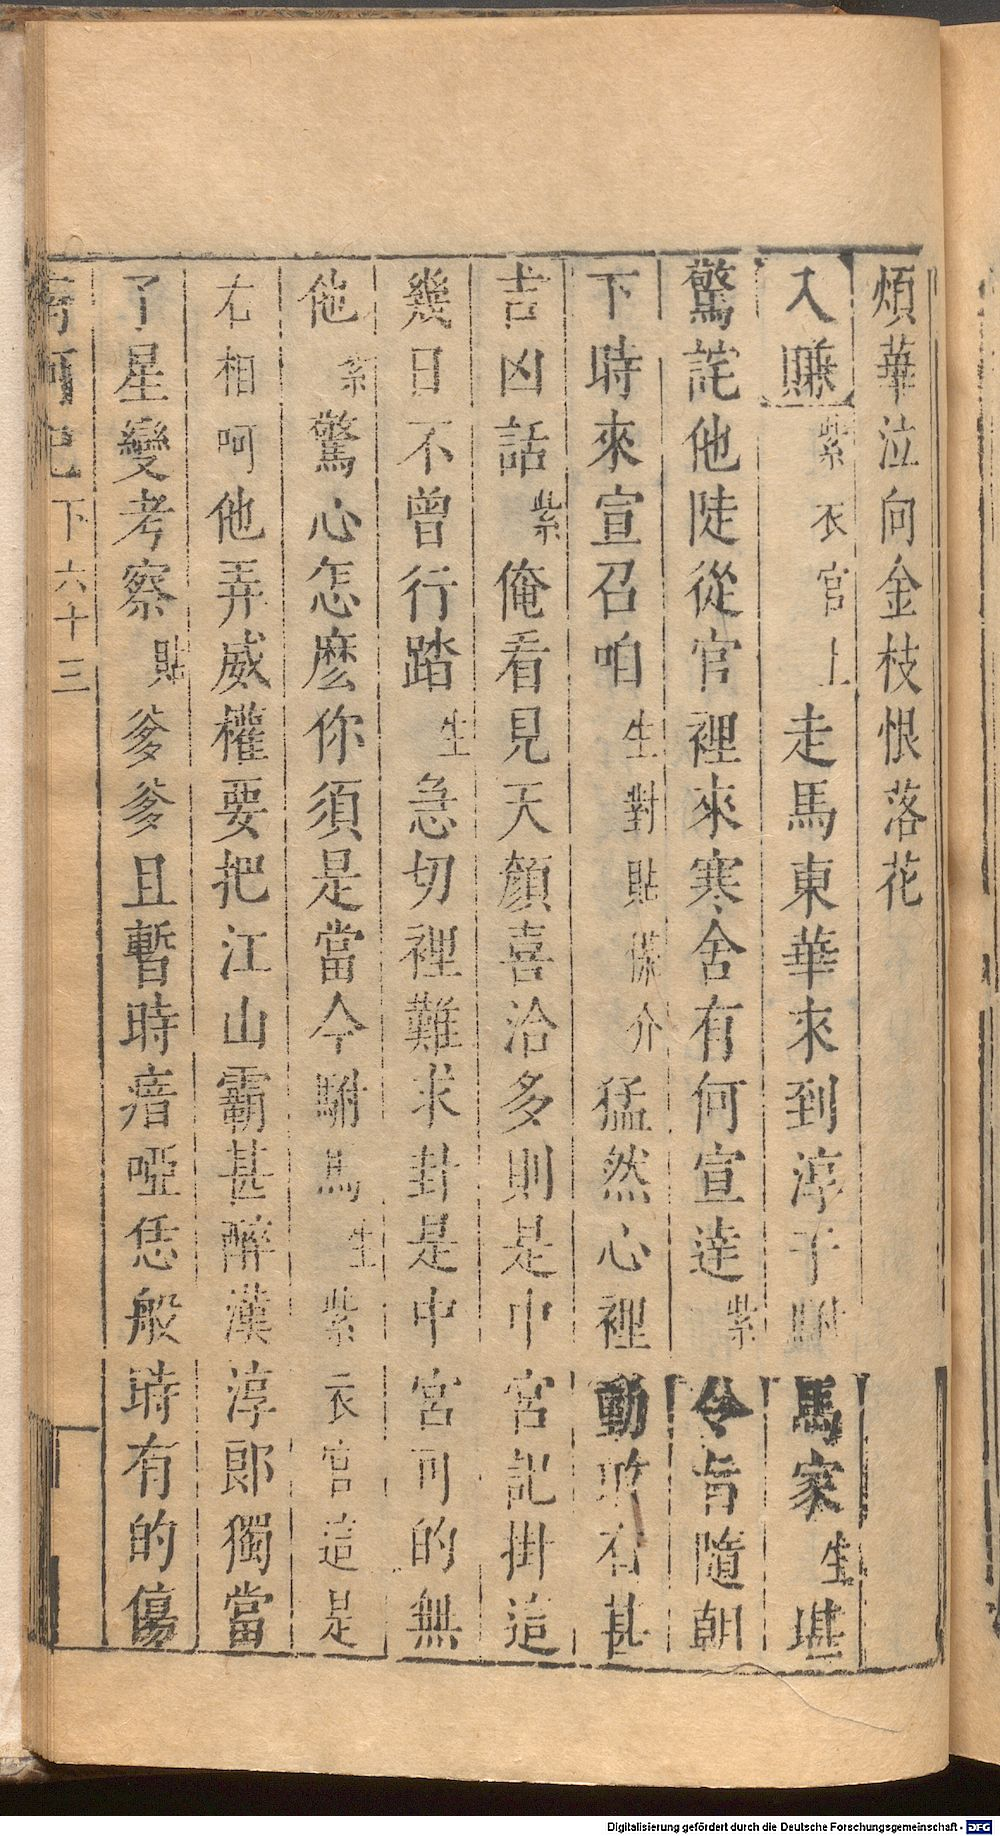 煩華泣向金枝恨落花
入賺紫衣官上走馬東華來到淳于駙馬家生堪
驚詫他陡從官裡來寒舍有何宣達紫令旨隨朝
下時來宣召咱生對貼介猛然心裡動敢有甚
吉凶話紫俺看見天顏喜洽多則是中宮記掛這
幾日不曾行踏生急切裡難求封是中宮可的無
他紫驚心怎麽你須是當今駙馬生紫衣官這是
右相呵他弄威權要把江山霸甚醉漢淳郎獨當
了星變考察貼爹爹且暫時瘖啞恁般時有的傷
南柯巴下六十三
Digitalisierung gefördert durch die Deutsche Forschungsgemeinschaft - DFG